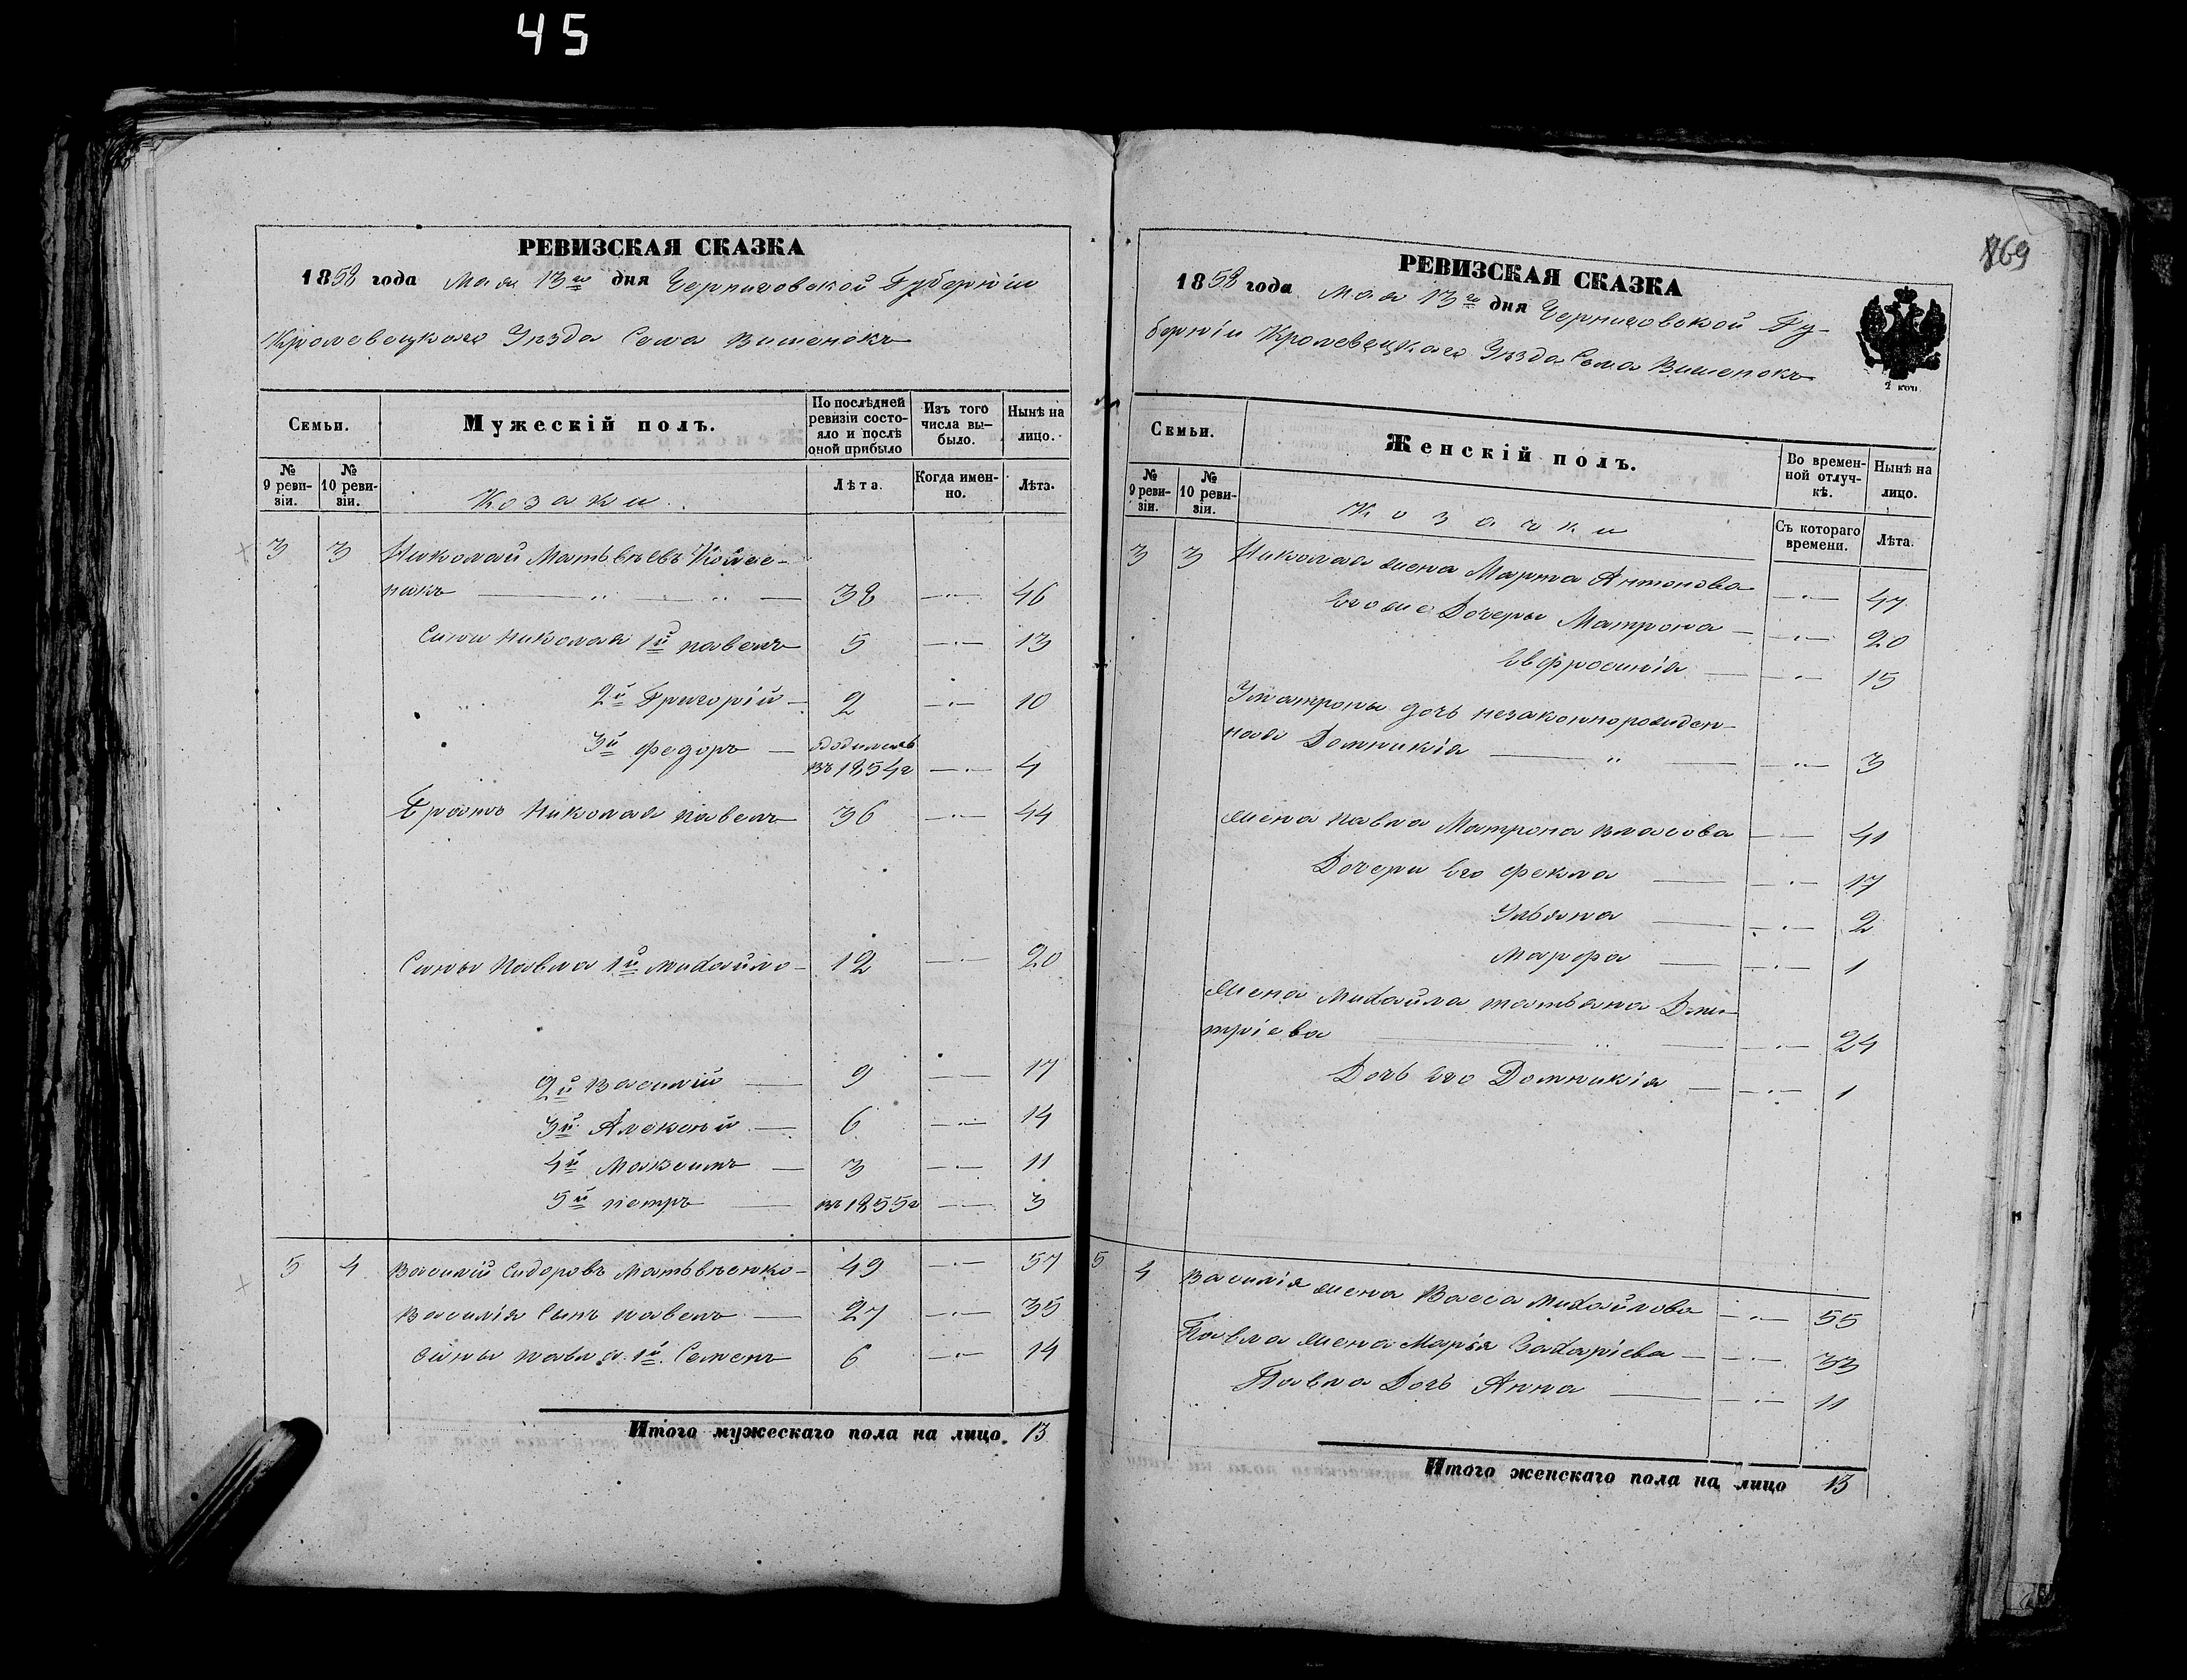 45
РЕВИЗСКАЯ СКАЗКА
1858 года Мая 13го дня Черниговской Губерніи
Кролевецкаго Уѣзда Села Вишенокъ
Семьи.
Мужескій полъ.
По послѣдней ревизіи состояло и послѣ оной прибыло
Изъ того числа выбыло.
Нынѣ на лицо.
№ 9 ревизіи.
№ 10 ревизіи.
Козаки
Лѣта.
Когда именно.
Лѣта.
3 3 Николай Матвѣевъ
никъ — „ — „ — 38 — 46
Сыны Николая 1й Павелъ 5 — 13
2й Григорій — 2 — 10
3й Федоръ — родился
въ 1854г — 4
Братъ Николая Павелъ 36 — 44
Сыны Павла 1й Михайло — 12 — 20
2й Василій — 9 — 17
3й Алексей — 6 — 14
4й Максимъ — 3 — 11
5й Петръ — въ 1855г — 3
5 4 Василій Сидоровъ Матвѣенко — 49 — 57
Василія Сынъ Павелъ — 27 — 35
Сыны Павла 1й Семенъ 6 — 14
Итого мужескаго пола на лицо. 13
869
РЕВИЗСКАЯ СКАЗКА
1858 года Мая 13го дня Черниговской Гу-
берніи Кролевецкаго Уѣзда Села Вишенокъ
2 коп
Семьи.
Женскій полъ.
Во временной отлучкѣ.
Нынѣ на лицо.
№ 9 ревизіи.
№ 10 ревизіи.
Козачки
Съ котораго времени.
Лѣта.
3 3 Николая жена Марта Антонова — 47
Его же Дочеры Матрона — 20
Евфросинія — 15
У Матроны дочь незаконнорожден-
ная Домникія — „ — 3
Жена Павла Матрона Власова — 41
Дочери Его Фекла — 17
Ульяна — 2
Марфа — 1
Жена Михайла Татьяна Дми-
тріева — 24
Дочь Его Домникія — 1
5 4 Василія жена Васса Михайлова — 55
Павла жена Марія Захаріева — 33
Павла Дочь Анна — 11
Итого женскаго пола на лицо 13